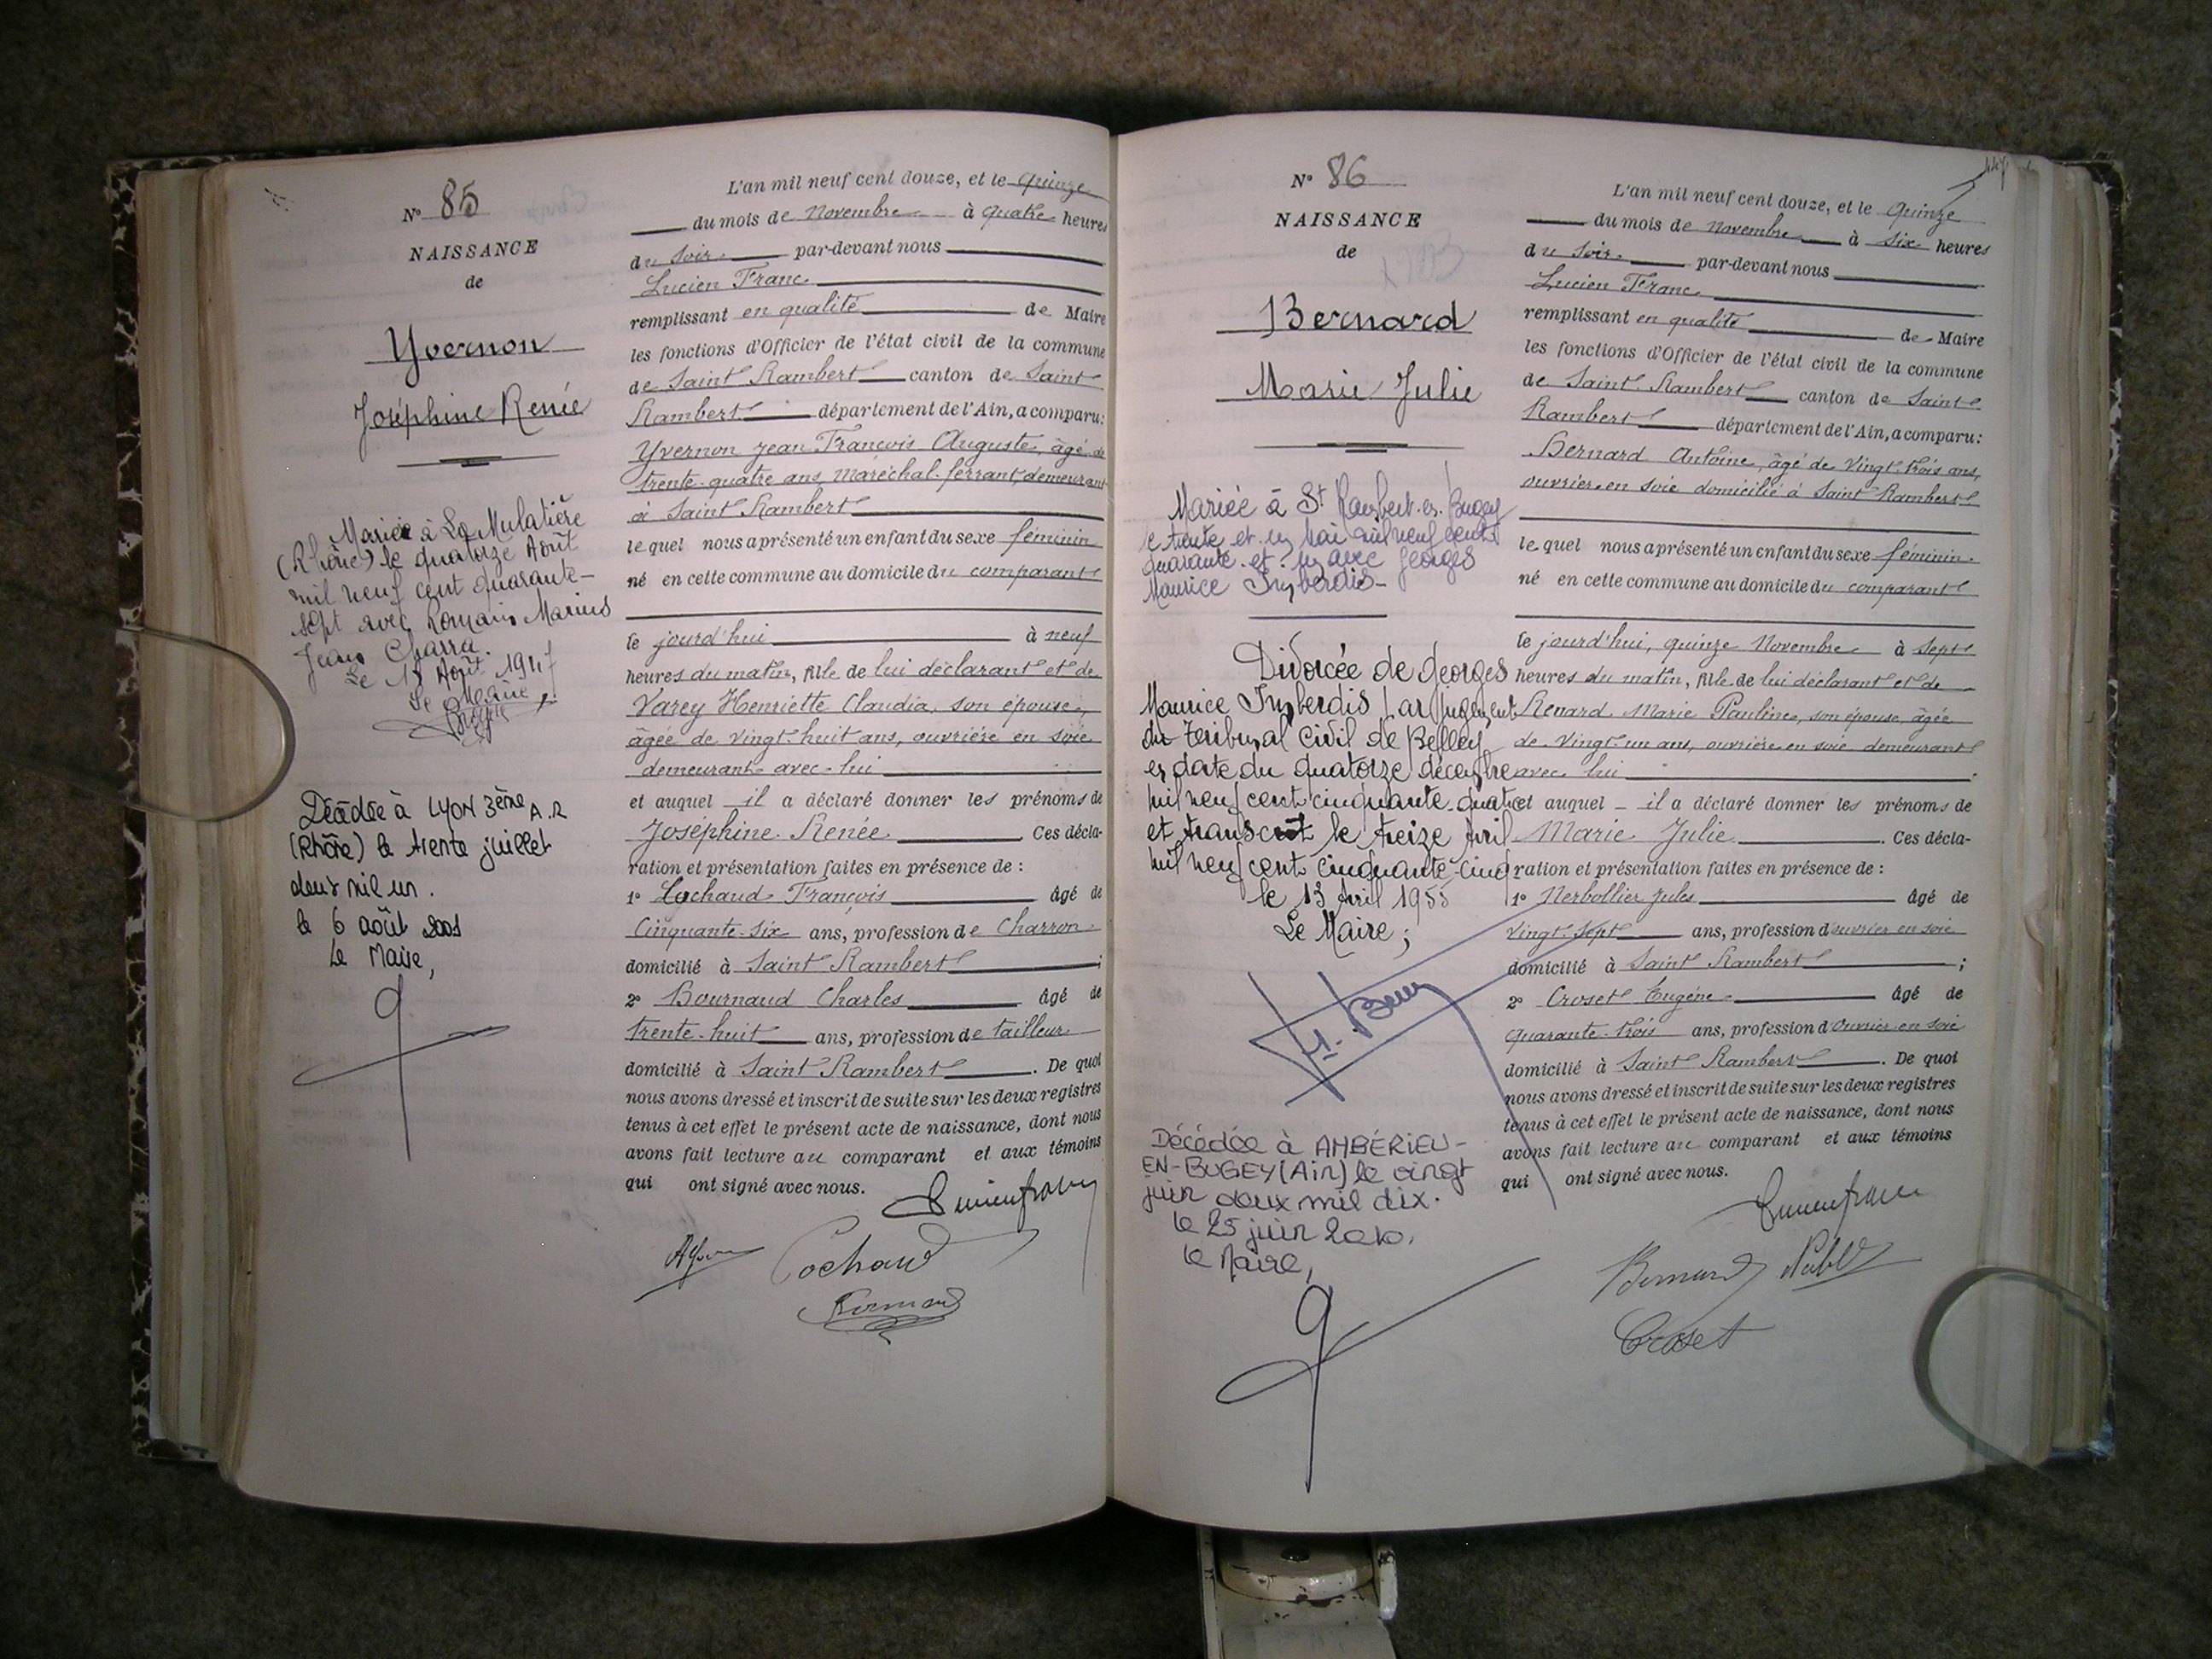 N° 85
NAISSANCE
de
Yvernon
Joséphine Renée
Mariée à La Mulatière
(Rhône) le quatorze Août
mil neuf cent quarante-
sept avec Romain Marius
Jean Charra.
Le 18 Août 1947
Le Maire
Décédée à LYON 3ème A.R
(Rhône) le trente juillet
deux mil un.
le 6 août 2001
Le Maire,
L'an mil neuf cent douze, et le quinze
du mois de Novembre à quatre heures
du soir par-devant nous
Lucien Franc
remplissant en qualité de Maire
les fonctions d'Officier de l'état civil de la commune
de Saint Rambert canton de Saint
Rambert département de l'Ain, a comparu:
Yvernon Jean François Auguste, âgé de
trente-quatre ans, Maréchal-ferrant, demeurant
à Saint Rambert
lequel nous a présenté un enfant du sexe féminin
né en cette commune au domicile du comparant
le jourd'hui à neuf
heures du matin, fille de lui déclarant et de
Varey Henriette Claudia, son épouse,
âgée de vingt-huit ans, ouvrière en soie
demeurant avec lui
et auquel il a déclaré donner les prénoms de
Joséphine Renée. Ces décla-
ration et présentation faites en présence de :
1° Cochaud François âgé de
Cinquante-six ans, profession de Charron
domicilié à Saint Rambert ;
2° Bournaud Charles âgé de
trente-huit ans, profession de tailleur
domicilié à Saint Rambert. De quoi
nous avons dressé et inscrit de suite sur les deux registres
tenus à cet effet le présent acte de naissance, dont nous
avons fait lecture au comparant et aux témoins
qui ont signé avec nous.
Lucien franc
Cochaud
N° 86
NAISSANCE
de
Bernard
Marie Julie
Mariée à St Rambert-en-Bugey
le trente et un Mai mil neuf cent
quarante-et-un avec Georges
Maurice Imberdis-
Divorcée de Georges
Maurice Imberdis par jugement
du Tribunal Civil de Belley
en date du quatorze décembre
mil neuf cent cinquante-quatre
et transcrit le treize Avril
mil neuf cent cinquante-cinq
le 13 Avril 1955
Le Maire;
Décédée à AMBÉRIEU-
EN-BUGEY (Ain) le vingt
juin deux mil dix.
le 25 juin 2010.
le Maire,
L'an mil neuf cent douze, et le quinze
du mois de Novembre à six heures
du soir par-devant nous
Lucien Franc
remplissant en qualité de Maire
les fonctions d'Officier de l'état civil de la commune
de Saint Rambert canton de Saint
Rambert département de l'Ain, a comparu:
Bernard Antoine, âgé de vingt-trois ans,
ouvrier en soie domicilié à Saint Rambert
lequel nous a présenté un enfant du sexe féminin
né en cette commune au domicile du comparant
le jourd'hui, quinze Novembre à sept
heures du matin, fille de lui déclarant et de
Renard Marie Pauline, son épouse, âgée
de vingt-un ans, ouvrière en soie demeurant
avec lui
et auquel il a déclaré donner les prénoms de
Marie Julie. Ces décla-
ration et présentation faites en présence de :
1° Nerbollier Jules âgé de
vingt-sept ans, profession d'ouvrier en soie
domicilié à Saint Rambert ;
2° Croset Eugène âgé de
quarante-trois ans, profession d'ouvrier en soie
domicilié à Saint Rambert. De quoi
nous avons dressé et inscrit de suite sur les deux registres
tenus à cet effet le présent acte de naissance, dont nous
avons fait lecture au comparant et aux témoins
qui ont signé avec nous.
Lucien franc
Bernard
Croset